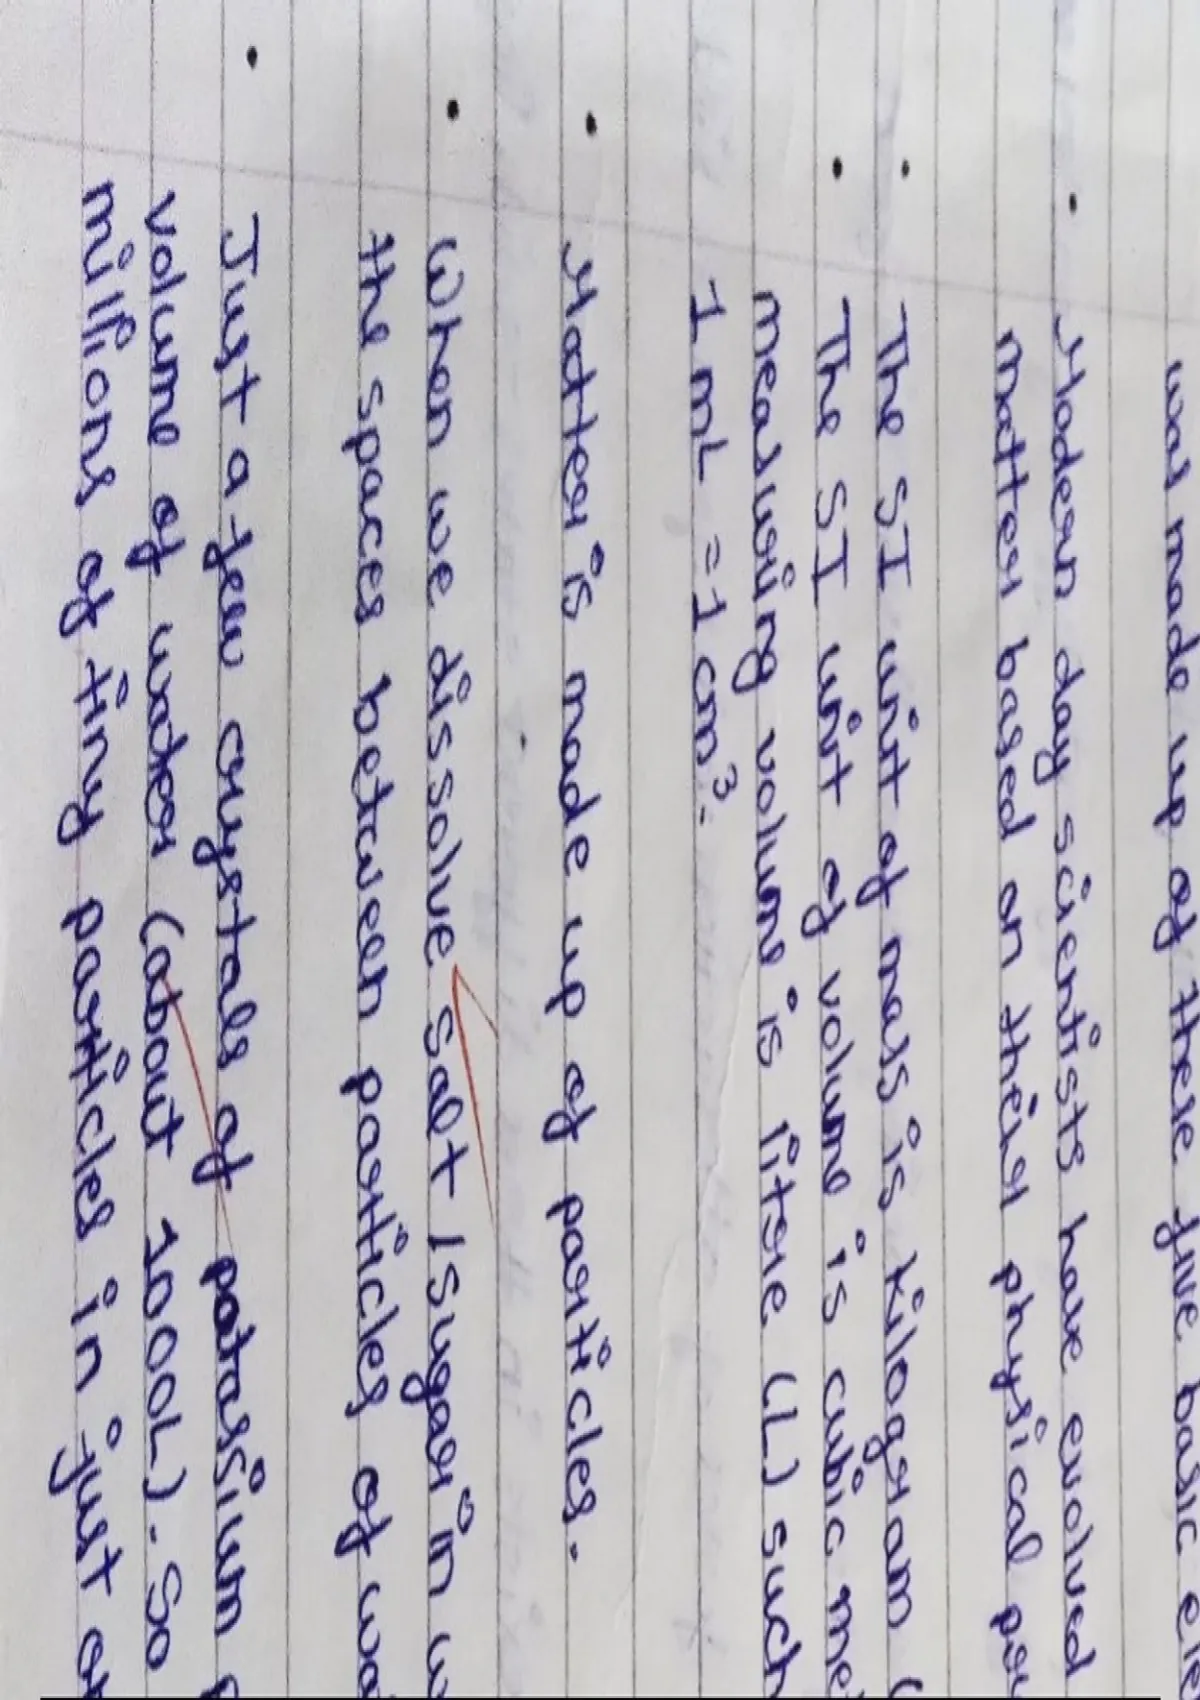 was made up of these five basic ele
• Modern day scientists have evolved
matter based on their physical pro
• The SI unit of mass is kilogram (
• The SI unit of volume is cubic me
measuring volume is litre (L) such
1 mL = 1 cm³.
• Matter is made up of particles.
• When we dissolve salt / sugar in w
the spaces between particles of wa
• Just a few crystals of potassium p
volume of water (about 1000L). So
millions of tiny particles in just on